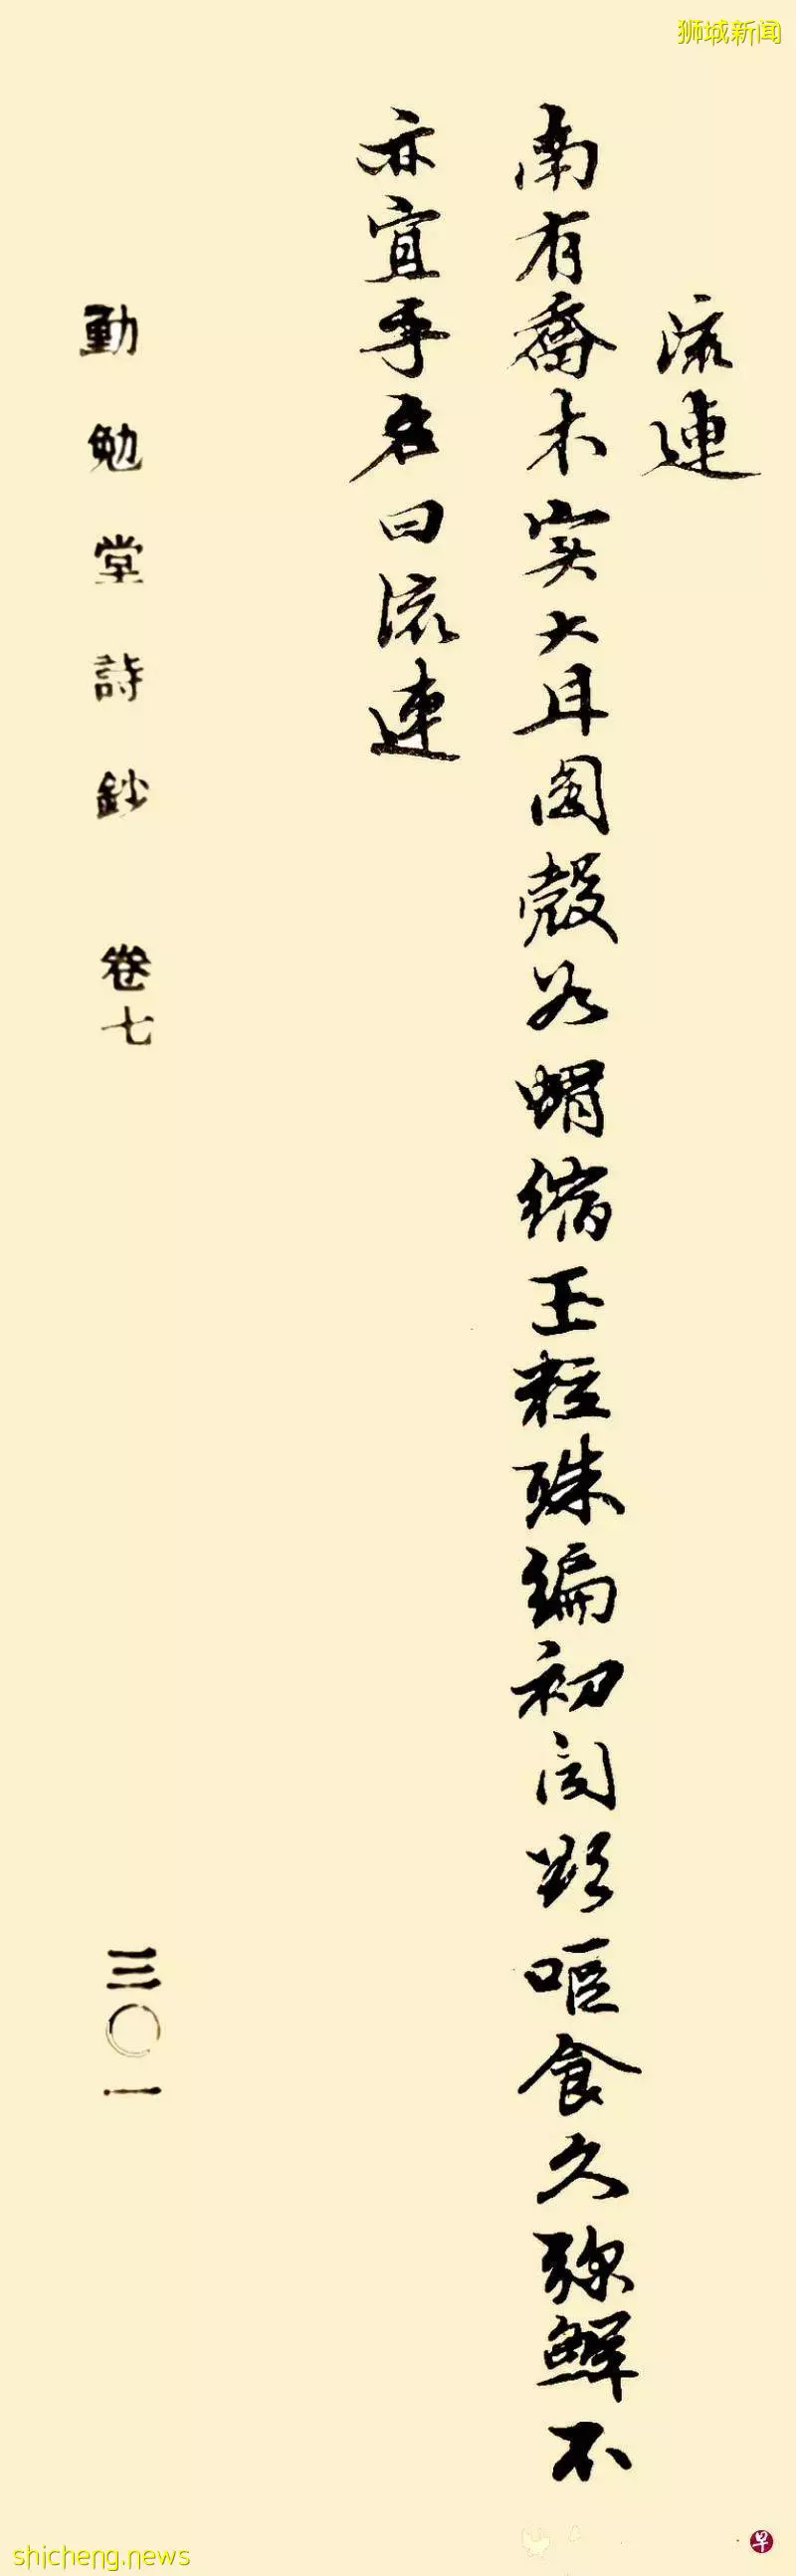 狮城新闻
流連
南有喬木实大且圓殻若蝟縮玉粒珠编初闻欲嘔食久弥鮮不
亦宜乎名曰流連
動勉堂詩鈔 卷七
三〇一
shicheng.news
早